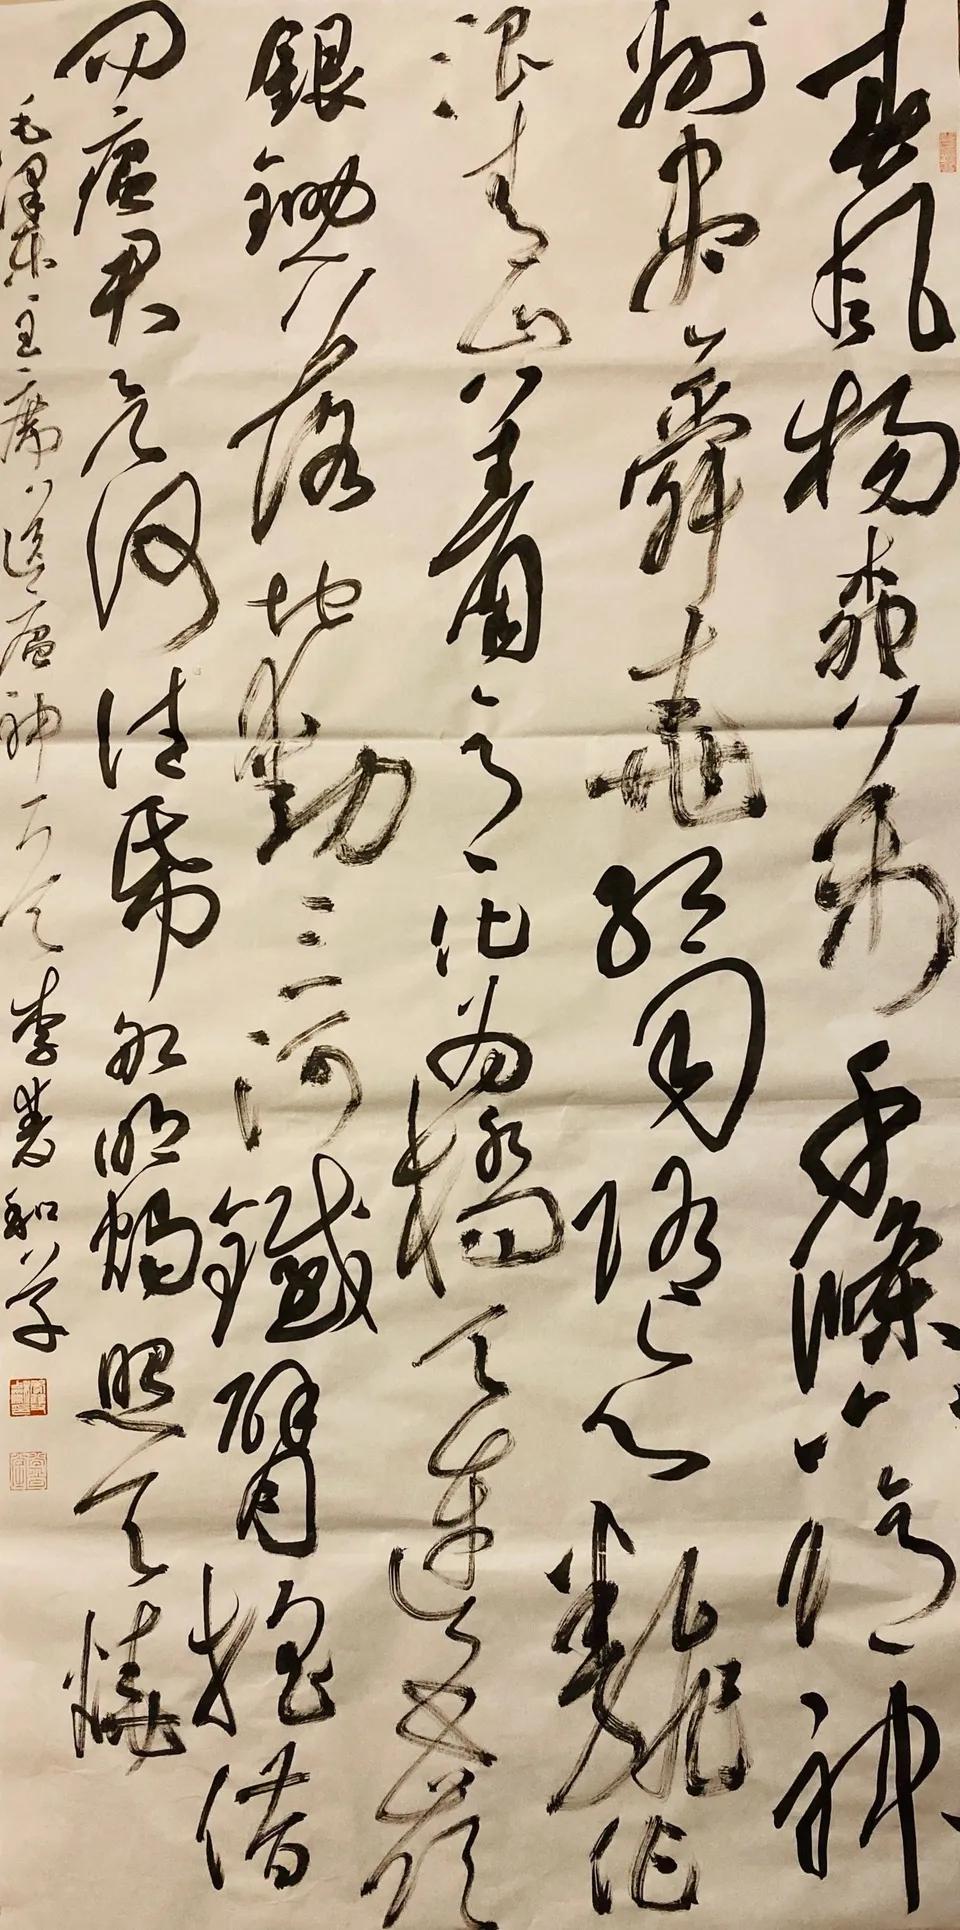 春風楊柳萬千條六億神
州盡舜堯紅雨隨心翻作
浪青山著意化為橋天連五嶺
銀鋤落地動三河鐵臂搖借
問瘟君欲何往紙船明燭照天燒
毛澤東主席送瘟神 李 和